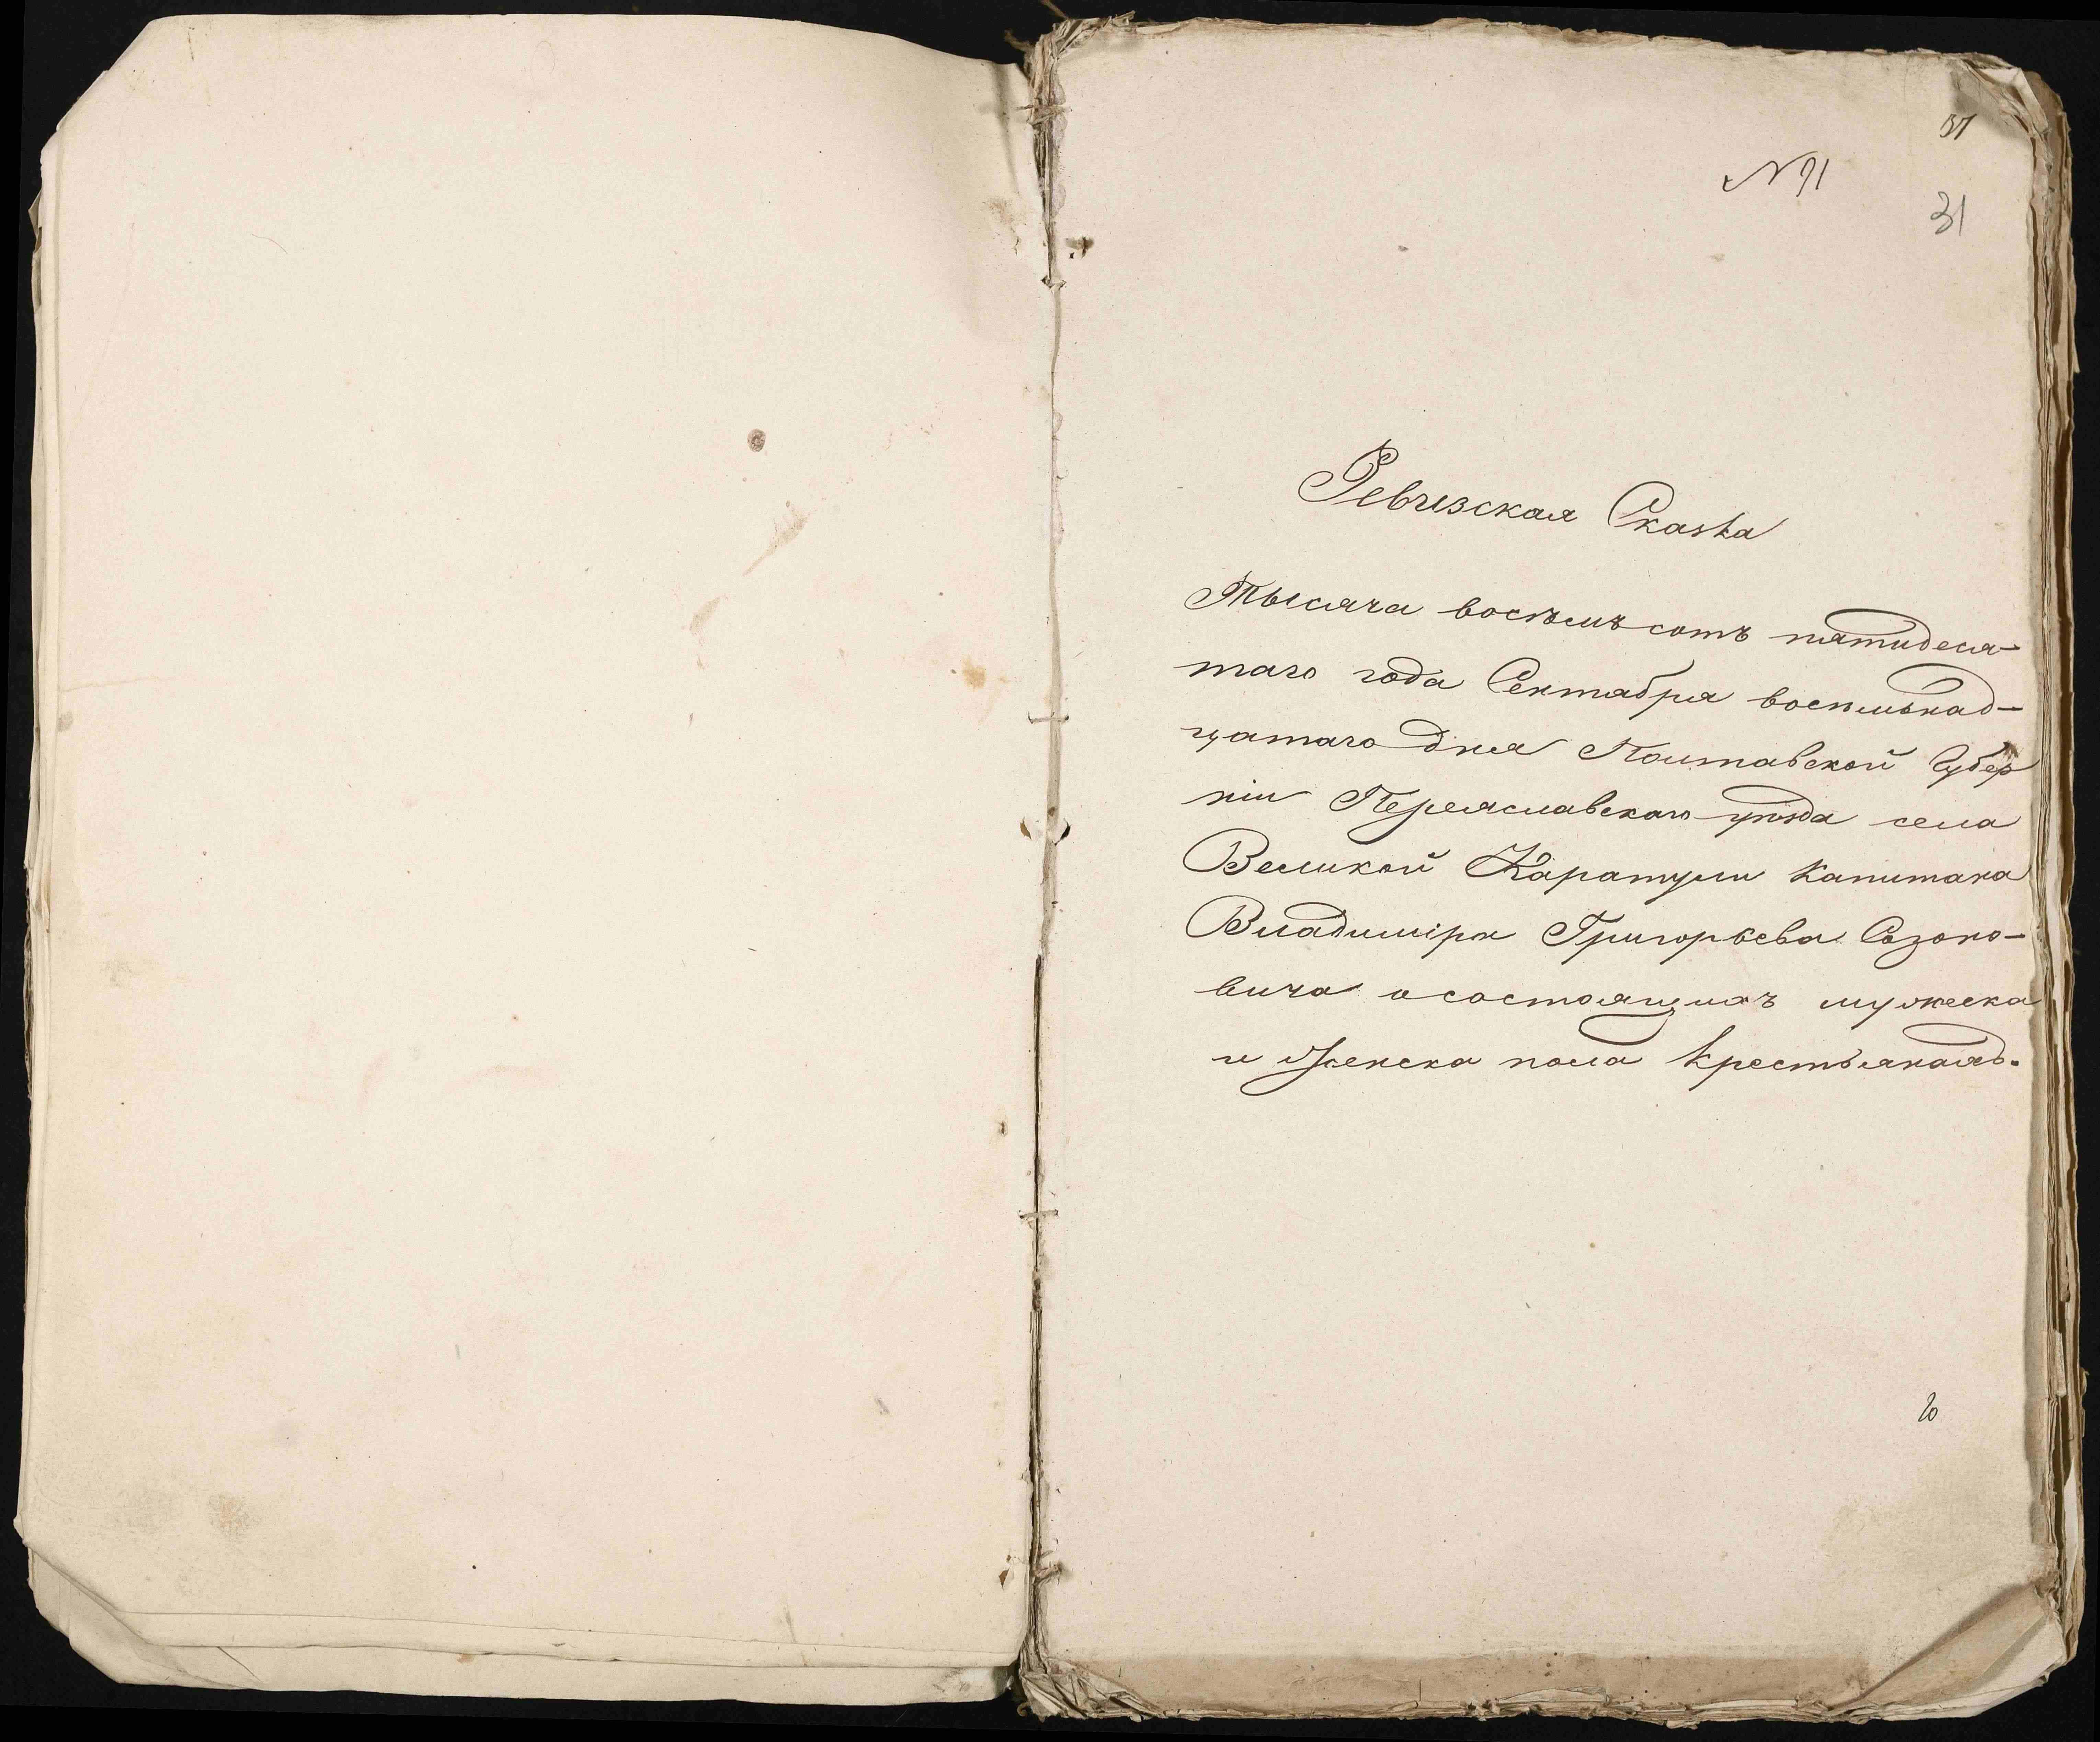 37
№ 91
31
Ревизская Сказка
Тысяча восѣмъ сотъ пятидеся-
таго года Сентября восѣмьнад-
цатаго дня Полтавской Губер
ніи Переяславскаго уѣзда села
Великой Каратули Капитана
Владиміра Григорьева Созоно-
вича о состоящихъ мужеска
и женска пола крестьянахъ.